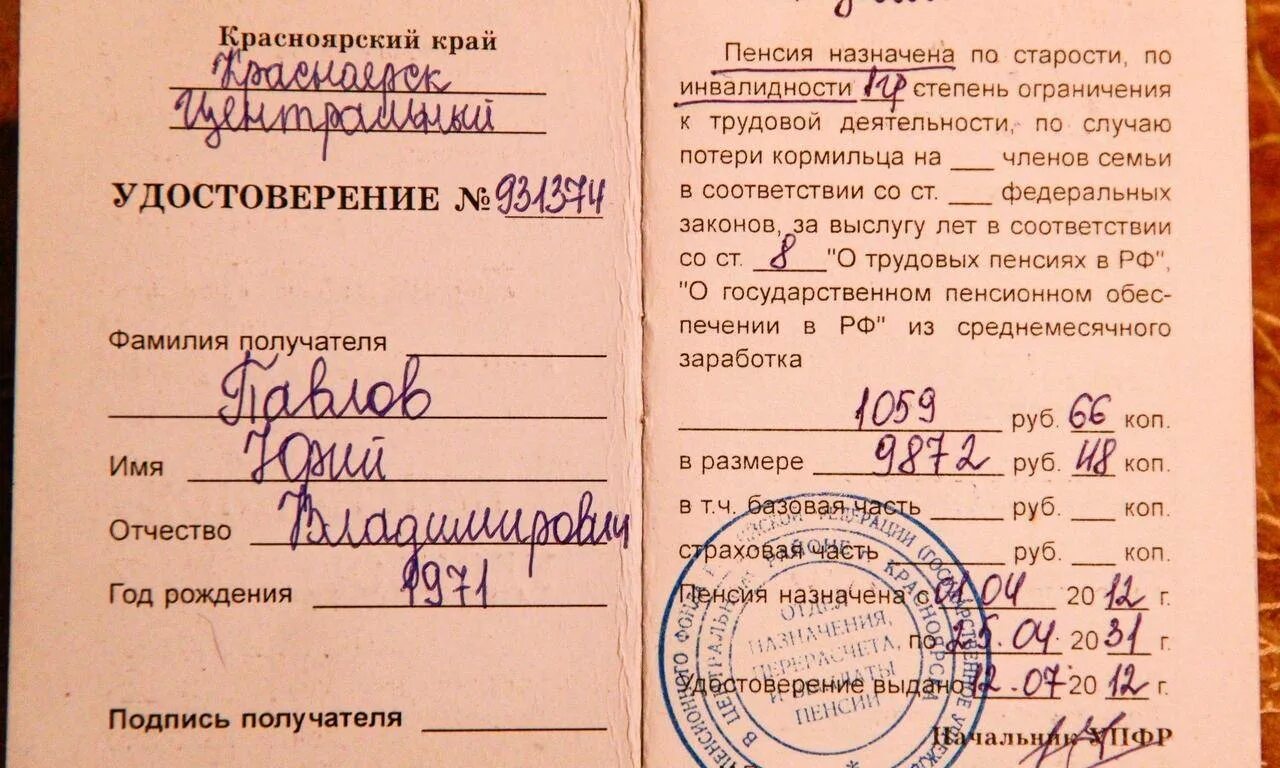 Красноярский край
Красноярск
Центральный
УДОСТОВЕРЕНИЕ № 931374
Фамилия получателя
Павлов
Имя Юрий
Отчество Владимирович
Год рождения 1971
Подпись получателя
Пенсия назначена по старости, по
инвалидности 1гр степень ограничения
к трудовой деятельности, по случаю
потери кормильца на ___ членов семьи
в соответствии со ст. ___ федеральных
законов, за выслугу лет в соответствии
со ст. 8 "О трудовых пенсиях в РФ",
"О государственном пенсионном обес-
печении в РФ" из среднемесячного
заработка
1059 руб. 66 коп.
в размере 9872 руб. 48 коп.
в т.ч. базовая часть ___ руб. ___ коп.
страховая часть ___ руб. ___ коп.
Пенсия назначена с 01.04 2012 г.
по 25.04 2031 г.
Удостоверение выдано 12.07 2012 г.
Начальник УПФР
ПЕНСИОННОГО ФОНДА
ФЕДЕРАЦИИ (ГОСУДАРСТВЕННОЕ
В ЦЕНТРАЛЬНОМ РАЙОНЕ Г. КРАСНОЯРСКА
ОТДЕЛ
НАЗНАЧЕНИЯ,
ПЕРЕРАСЧЕТА,
И ВЫПЛАТЫ
ПЕНСИЙ